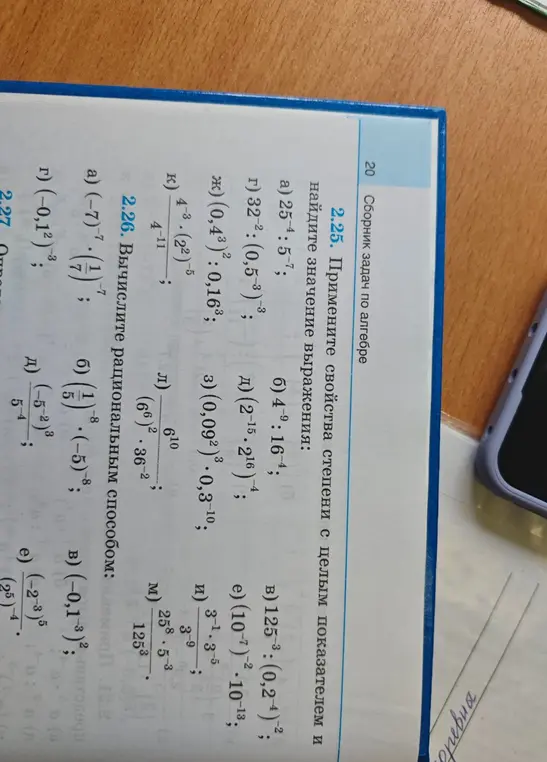 20 Сборник задач по алгебре
2.25. Примените свойства степени с целым показателем и
найдите значение выражения:
а) 25⁻⁴ : 5⁻⁷; б) 4⁻⁹ : 16⁻⁴; в) 125⁻³ : (0,2⁻⁴)⁻²;
г) 32⁻² : (0,5⁻³)⁻³; д) (2⁻¹⁵ · 2¹⁶)⁻⁴; е) (10⁻⁷)⁻² · 10⁻¹³;
ж) (0,4³)² : 0,16³; з) (0,09²)³ · 0,3⁻¹⁰; и) (3⁻¹ · 3⁻⁵)/(3⁻⁹);
к) (4⁻³ · (2²)⁻⁵)/(4⁻¹¹); л) 6¹⁰/((6⁶)² · 36⁻²); м) (25⁸ · 5⁻³)/(125³).
2.26. Вычислите рациональным способом:
а) (−7)⁻⁷ · (1/7)⁻⁷; б) (1/5)⁻⁸ · (−5)⁻⁸; в) (−0,1⁻³)²;
г) (−0,1²)⁻³; д) (−5⁻²)³/5⁻⁴; е) (−2⁻³)⁵/(2⁵)⁻⁴.
2.27